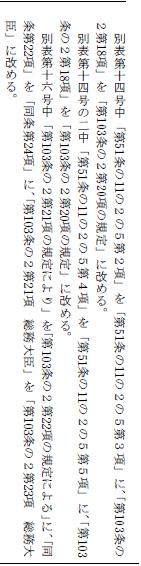 別表第十四号中「第51条の11の２の５第２項」を「第51条の11の２の５第３項」に、「第103条の
２第18項」を「第103条の２第20項の規定」に改める。
別表第十四号の二中「第51条の11の２の５第４項」を「第51条の11の２の５第５項」に、「第103
条の２第18項」を「第103条の２第20項の規定」に改める。
別表第十六号中「第103条の２第21項の規定により」を「第103条の２第22項の規定による」に、「同
条第22項」を「同条第24項」に、「第103条の２第21項　総務大臣」を「第103条の２第23項　総務大
臣」に改める。